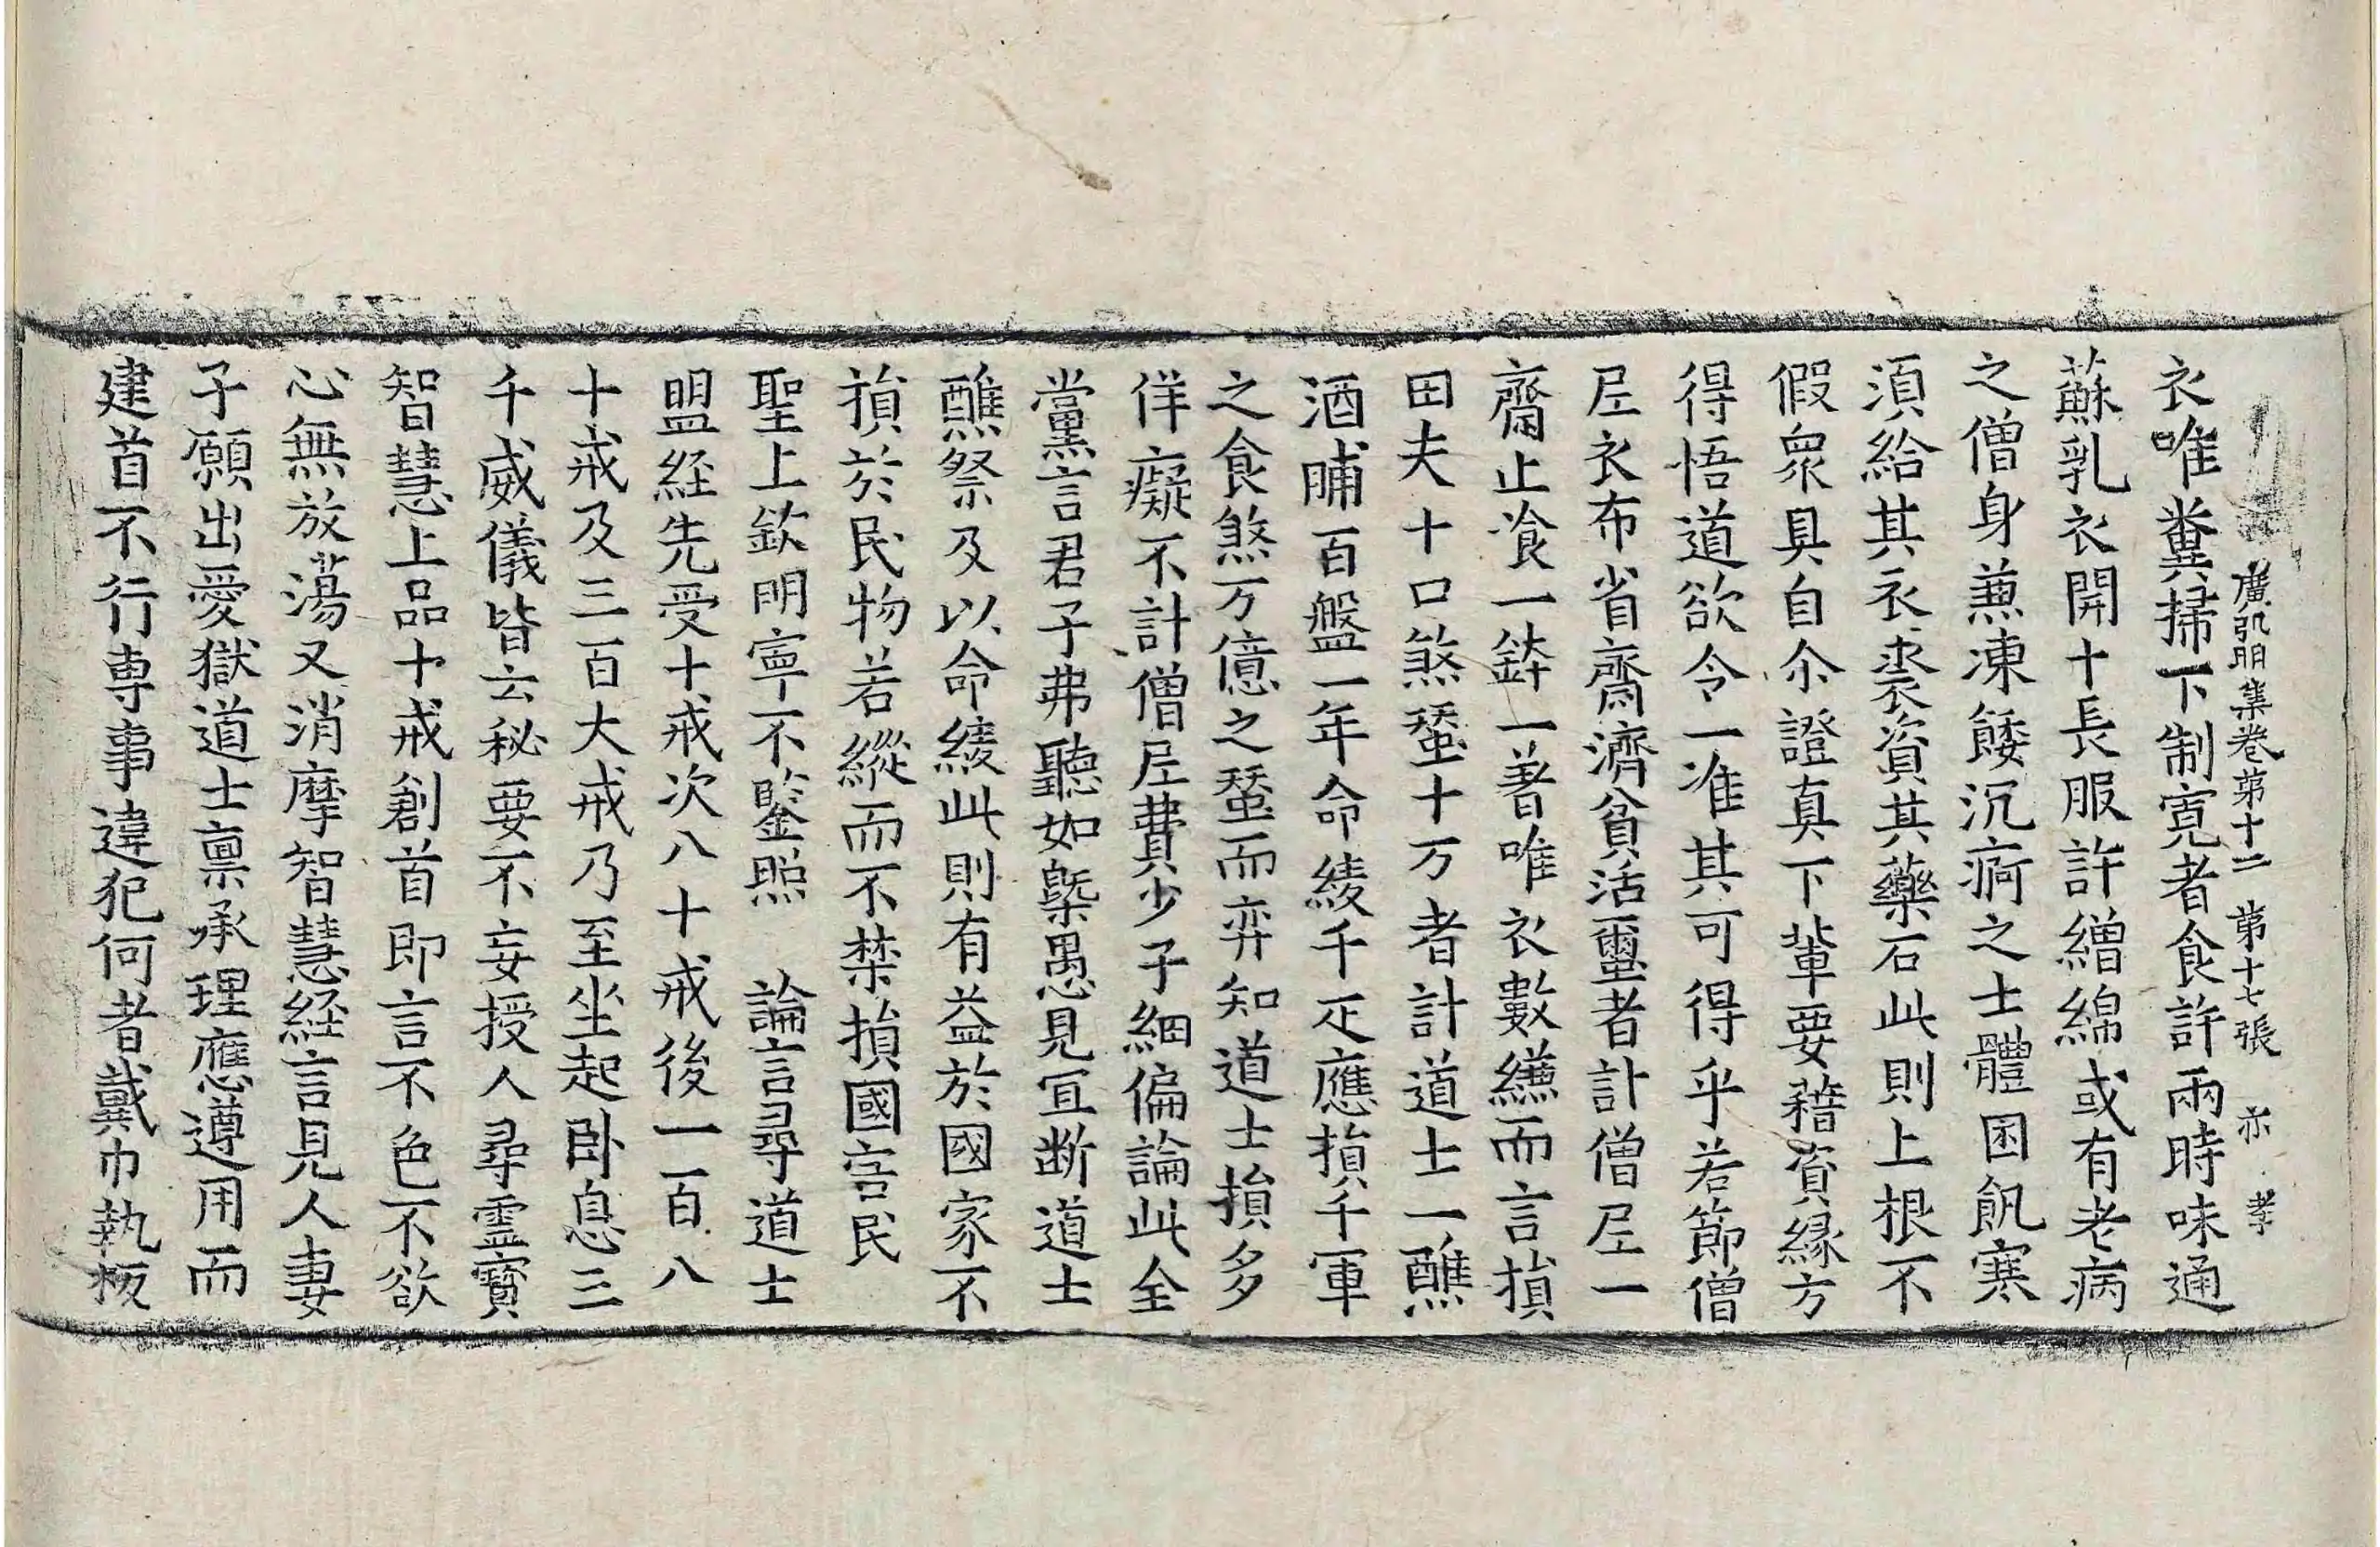 廣弘明集卷第十二 第十七張 亦 孝
衣唯糞掃下制寬者食許兩時味通
蘇乳衣開十長服許繒綿或有老病
之僧身羸凍餧沉痾之士體困飢寒
須給其衣裘資其藥石此則上根不
假衆具自尒證真下輩要藉資緣方
得悟道欲令一准其可得乎若節僧
尼衣布省齋濟貧活蠶者計僧尼一
齋止飡一鉢一著唯衣數縑而言損
田夫十口煞蠶十万者計道士一醮
酒脯百盤一年命綾千疋應損千軍
之食煞万億之蠶而弃知道士損多
佯癡不計僧尼費少子細偏論此全
黨言君子弗聽如槩愚見宜断道士
醮祭及以命綾此則有益於國家不
損於民物若縱而不禁損國害民
聖上欽明寧不鑒照 論言尋道士
盟經先受十戒次八十戒後一百八
十戒及三百大戒乃至坐起卧息三
千威儀皆云秘要不妄授人尋靈寶
智慧上品十戒創首即言不色不欲
心無放蕩又消摩智慧經言見人妻
子願出愛獄道士禀承理應遵用而
建首不行專事違犯何者戴巾執板